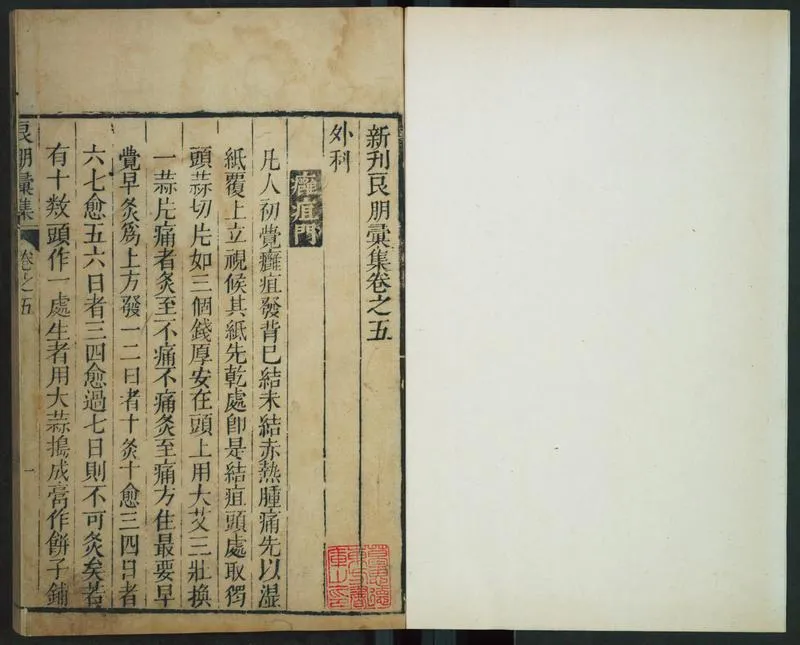 新刊良朋彙集卷之五
外科
癰疽門
凡人初覺癰疽發背已結未結赤熱腫痛先以濕
紙覆上立視候其紙先乾處卽是結疽頭處取獨
頭蒜切片如三個錢厚安在頭上用大艾三壯換
一蒜片痛者灸至不痛不痛灸至痛方住最要早
覺早灸爲上方發一二日者十灸十愈三四日者
六七愈五六日者三四愈過七日則不可灸矣若
有十数頭作一處生者用大蒜搗成膏作餅子鋪
良朋彙集 卷之五 一